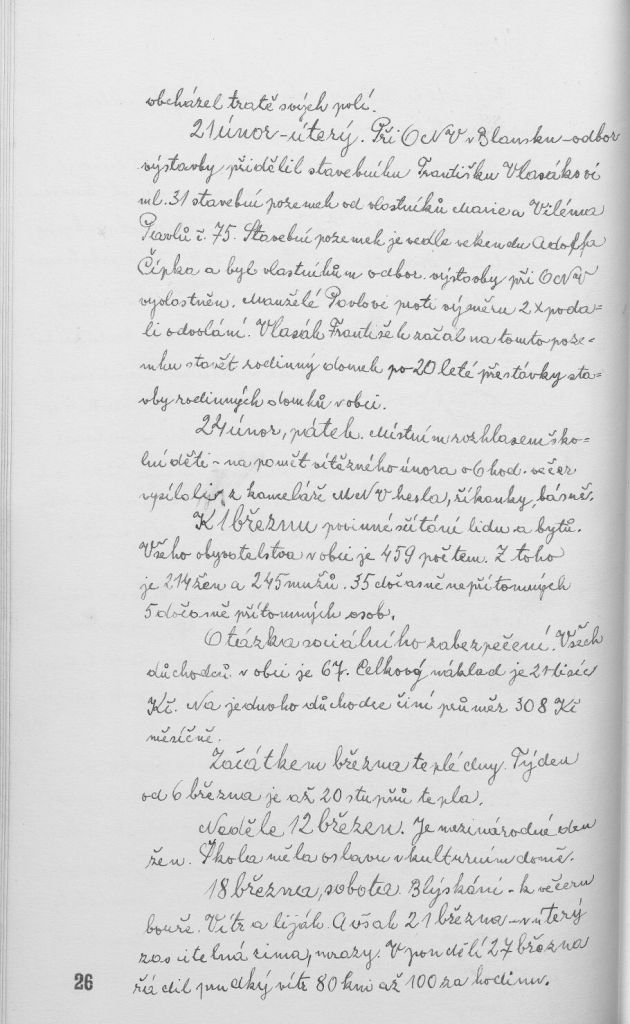 obcházel tratě svých polí.
21 únor - úterý. Při ONV v Blansku - odbor
výstavby přidělil stavebníku Františku Vlasákovi
ml. 31 stavební pozemek od vlastníků Marie a Viléma
Pavlů č. 75. Stavební pozemek je vedle vekendu Adolfa
Čípka a byl vlastníkům odbor. výstavby při ONV
vyvlastněn. Manželé Pavlovi proti výměru 2x poda=
li odvolání. Vlasák František začal na tomto poze=
mku stavět rodinný domek po 20 leté přestávky sta=
vby rodinných domků v obci.
24 únor, pátek. Místním rozhlasem ško=
lní děti - na pamět vítězného února o 6 hod. večer
vysílaly z kanceláře MNV hesla, říkanky, básně.
K 1 březnu povinné sčítání lidu a bytů.
Všeho obyvatelstva v obci je 459 počtem. Z toho
je 214 žen a 245 mužů. 35 dočasně nepřítomných
5 dočasně přítomných osob.
Otázka sociálního zabezpečení. Všech
důchodců v obci je 67. Celkový náklad je 21 tisíc
Kč. Na jednoho důchodce činí průměr 308 Kč
měsíčně.
Začátkem března teplé dny. Týden
od 6 března je až 20 stupňů tepla.
Neděle 12 březen. Je mezinárodné den
žen. Škola měla oslavu v kulturním domě.
18 března, sobota. Blýskání - k večeru
bouře. Vítr a liják. Avšak 21 března - v úterý
zas citelná zima, mrazy. V pondělí 27 března
řádil prudký vítr 80 km až 100 za hodinu.
26